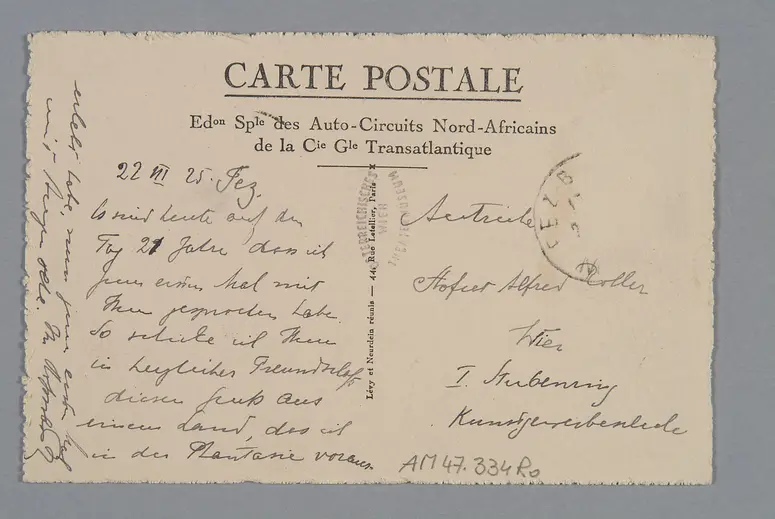 CARTE POSTALE
Edon Sple des Auto-Circuits Nord-Africains
de la Cie Gle Transatlantique
22 III 25. Fez.
Es sind heute auf den
Tag 21 Jahre dass ich
zum ersten Mal mit
Ihnen gesprochen habe.
So schicke ich Ihnen
in herzlicher Freundschaft
diesen Gruß aus
einem Land, das ich
in der Phantasie voraus
erlebt habe, nun zum ersten Mal
mit Augen sehe. Ihr
Lévy et Neurdein réunis — 44, Rue Letellier, Paris
ÖSTERREICHISCHES
THEATERMUSEUM
WIEN
FEZ
Autriche
Hofrat Alfred Roller
Wien
I. Stubenring
Kunstgewerbeschule
AM 47.334 Ro